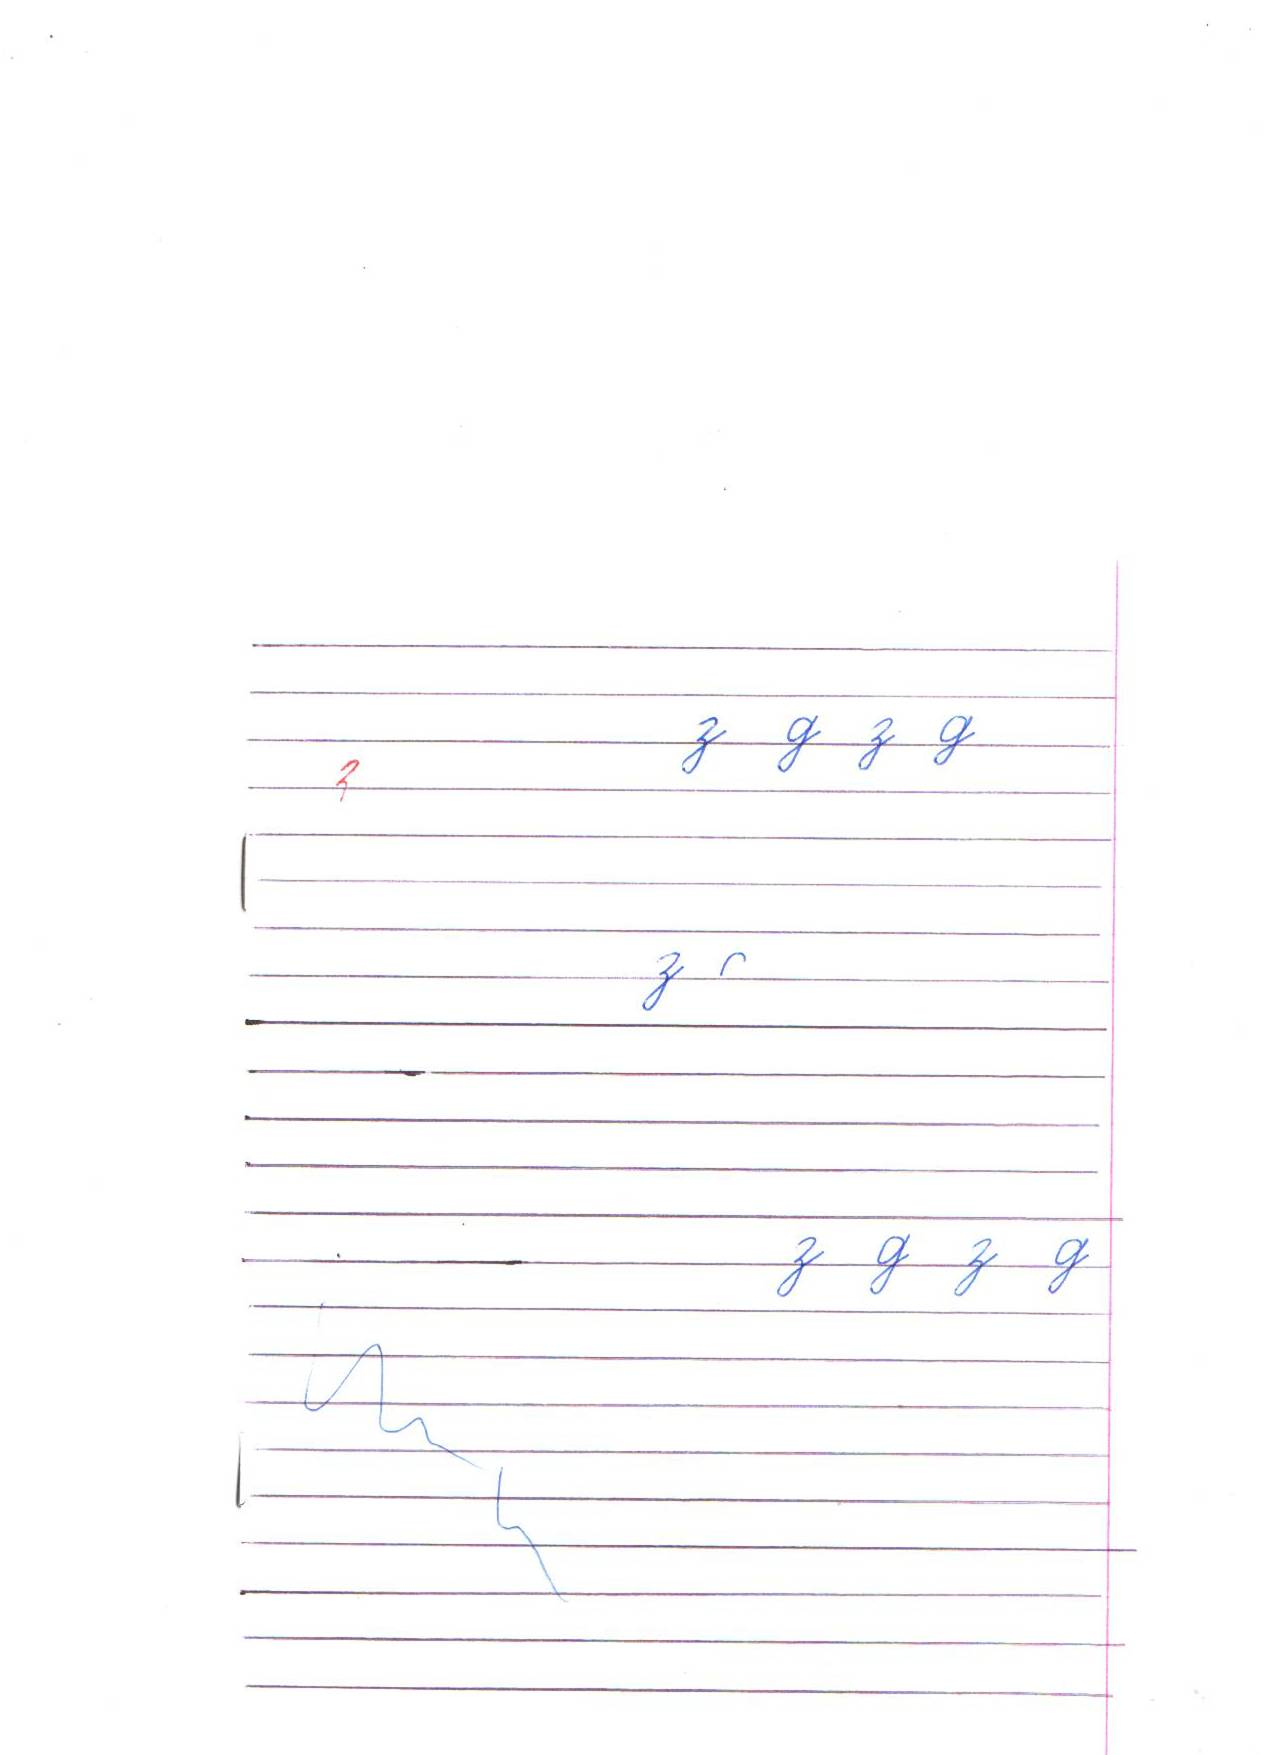 з д з д
з
з д з д